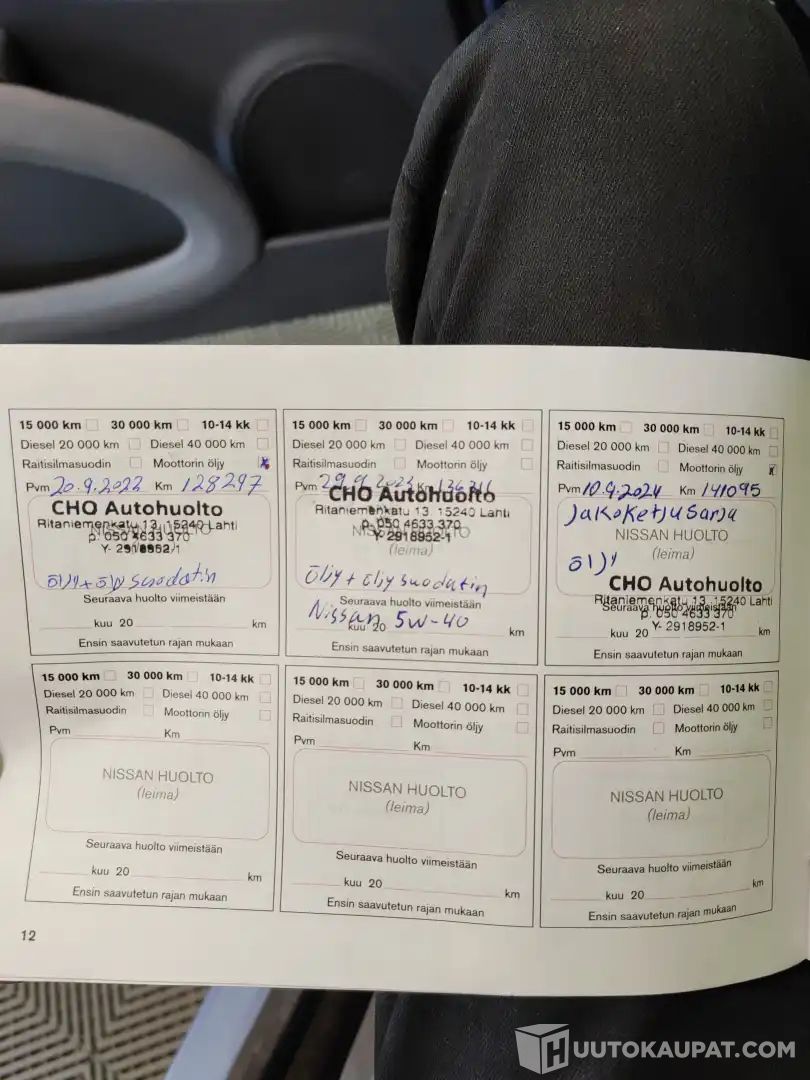 15 000 km 30 000 km 10-14 kk
Diesel 20 000 km Diesel 40 000 km
Raitisilmasuodin Moottorin öljy x
Pvm 20.9.2022 Km 128297
CHO Autohuolto
Ritaniemenkatu 13, 15240 Lahti
NISSAN HUOLTO
p. 050 4633 370
Y- 2918952-1
öljy + öljy suodatin
Seuraava huolto viimeistään
kuu 20 km
Ensin saavutetun rajan mukaan
15 000 km 30 000 km 10-14 kk
Diesel 20 000 km Diesel 40 000 km
Raitisilmasuodin Moottorin öljy
Pvm 29.9.2023 Km
CHO Autohuolto
Ritaniemenkatu 13, 15240 Lahti
p. 050 4633 370
NISSAN HUOLTO
Y- 2918952-1
(leima)
Öljy + öljy suodatin
Seuraava huolto viimeistään
Nissan 5W-40
kuu 20 km
Ensin saavutetun rajan mukaan
15 000 km 30 000 km 10-14 kk
Diesel 20 000 km Diesel 40 000 km
Raitisilmasuodin Moottorin öljy x
Pvm 10.9.2024 Km 141095
Jakoketjusarja
NISSAN HUOLTO
(leima)
öljy
CHO Autohuolto
Ritaniemenkatu 13, 15240 Lahti
Seuraava huolto viimeistään
p. 050 4633 370
kuu 20 Y- 2918952-1 km
Ensin saavutetun rajan mukaan
15 000 km 30 000 km 10-14 kk
Diesel 20 000 km Diesel 40 000 km
Raitisilmasuodin Moottorin öljy
Pvm Km
NISSAN HUOLTO
(leima)
Seuraava huolto viimeistään
kuu 20 km
Ensin saavutetun rajan mukaan
15 000 km 30 000 km 10-14 kk
Diesel 20 000 km Diesel 40 000 km
Raitisilmasuodin Moottorin öljy
Pvm Km
NISSAN HUOLTO
(leima)
Seuraava huolto viimeistään
kuu 20 km
Ensin saavutetun rajan mukaan
15 000 km 30 000 km 10-14 kk
Diesel 20 000 km Diesel 40 000 km
Raitisilmasuodin Moottorin öljy
Pvm Km
NISSAN HUOLTO
(leima)
Seuraava huolto viimeistään
kuu 20 km
Ensin saavutetun rajan mukaan
12
HUUTOKAUPAT.COM